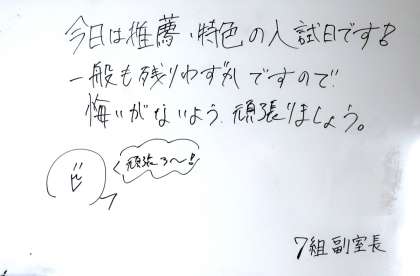 今日は推薦、特色の入試日です!
一般も残りわずかですので
悔いがないよう、頑張りましょう。
頑張ろ〜!!
7組 副室長